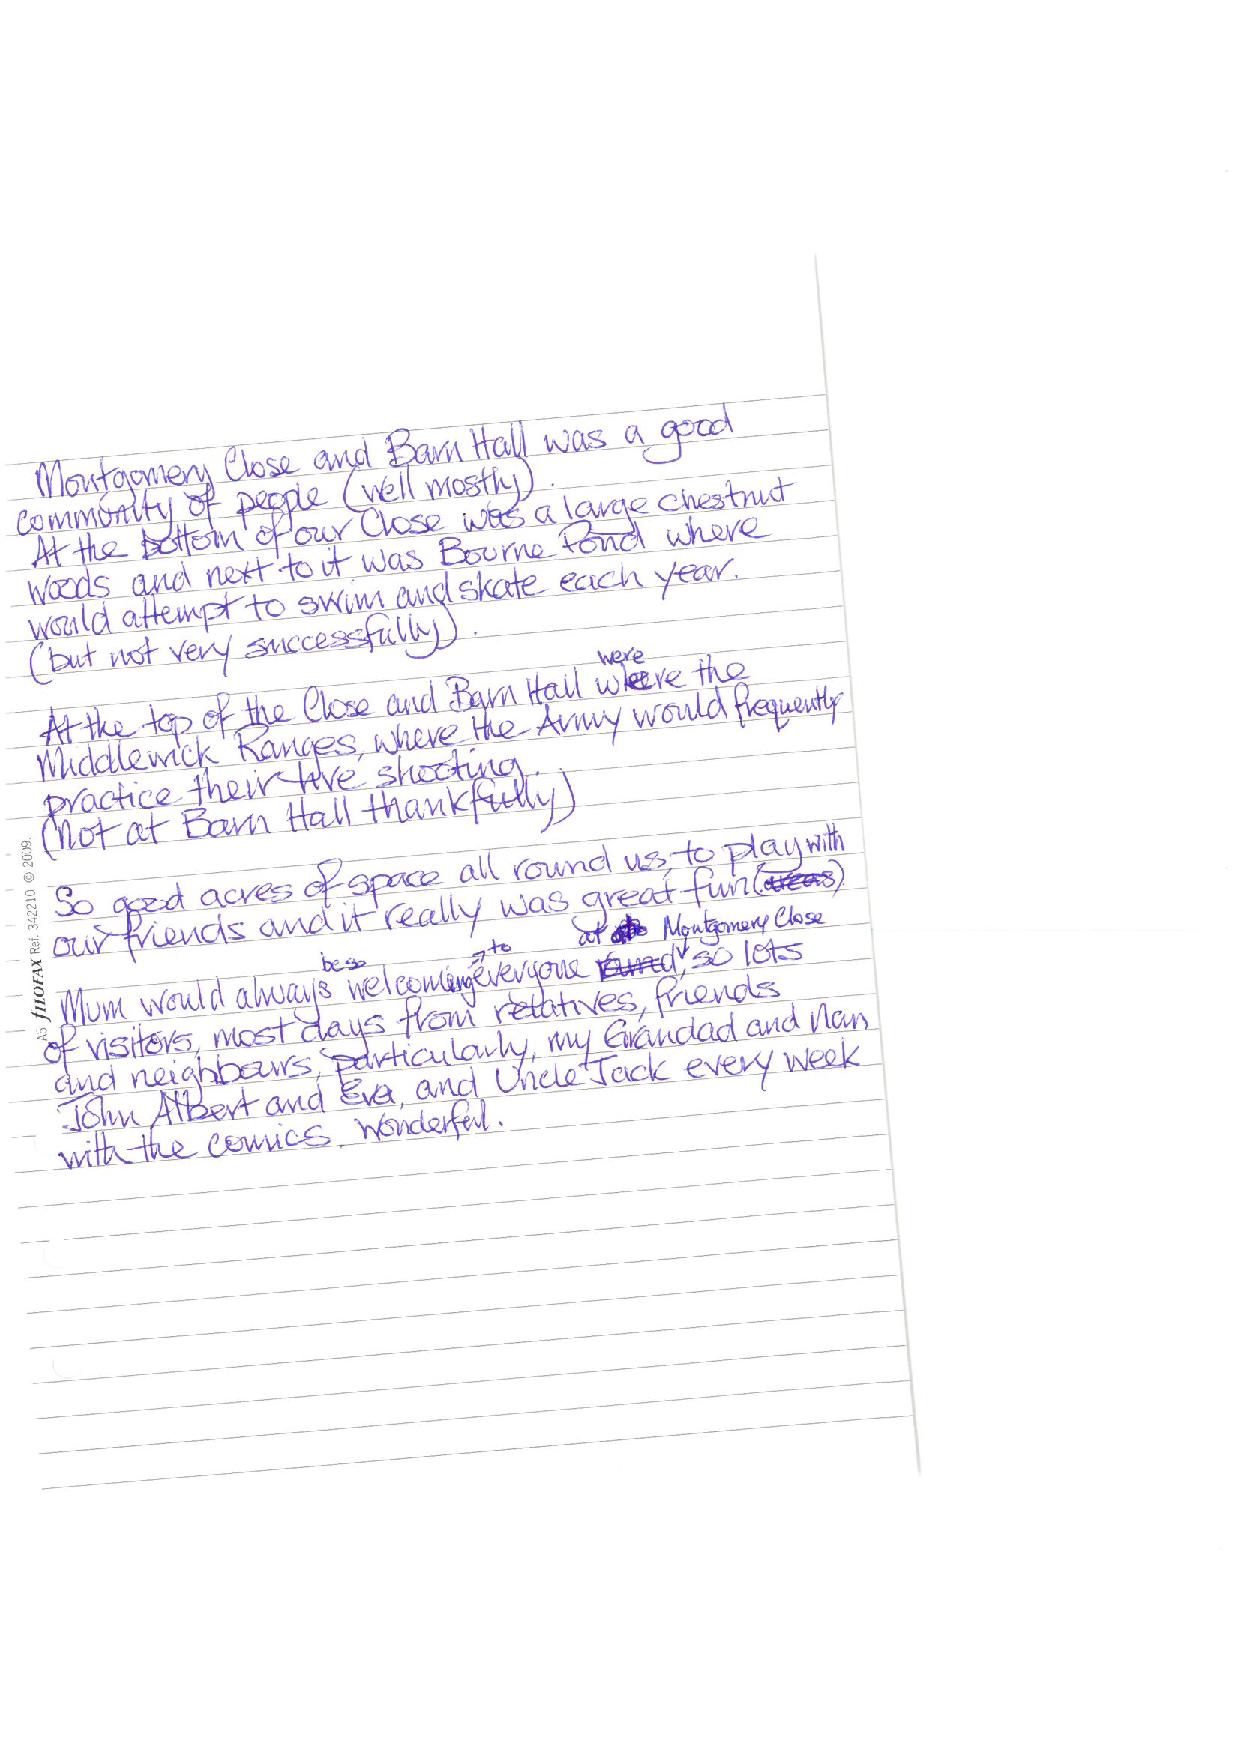 Montgomery Close and Barn Hall was a good
community of people (well mostly).
At the bottom of our Close was a large chestnut
woods and next to it was Bourne Pond where
would attempt to swim and skate each year.
(but not very successfully).
were
At the top of the Close and Barn Hall where the
Middlewick Ranges, where the Army would frequently
practice their live shooting.
(not at Barn Hall thankfully)
So good acres of space all round us, to play with
our friends and it really was great fun (areas)
at Montgomery Close
be so to
Mum would always welcoming everyone round, so lots
of visitors, most days from relatives, friends
and neighbours, particularly, my Grandad and Nan
John Albert and Eva, and Uncle Jack every week
with the comics. Wonderful.
A5 FILOFAX Ref. 342210 © 2009.